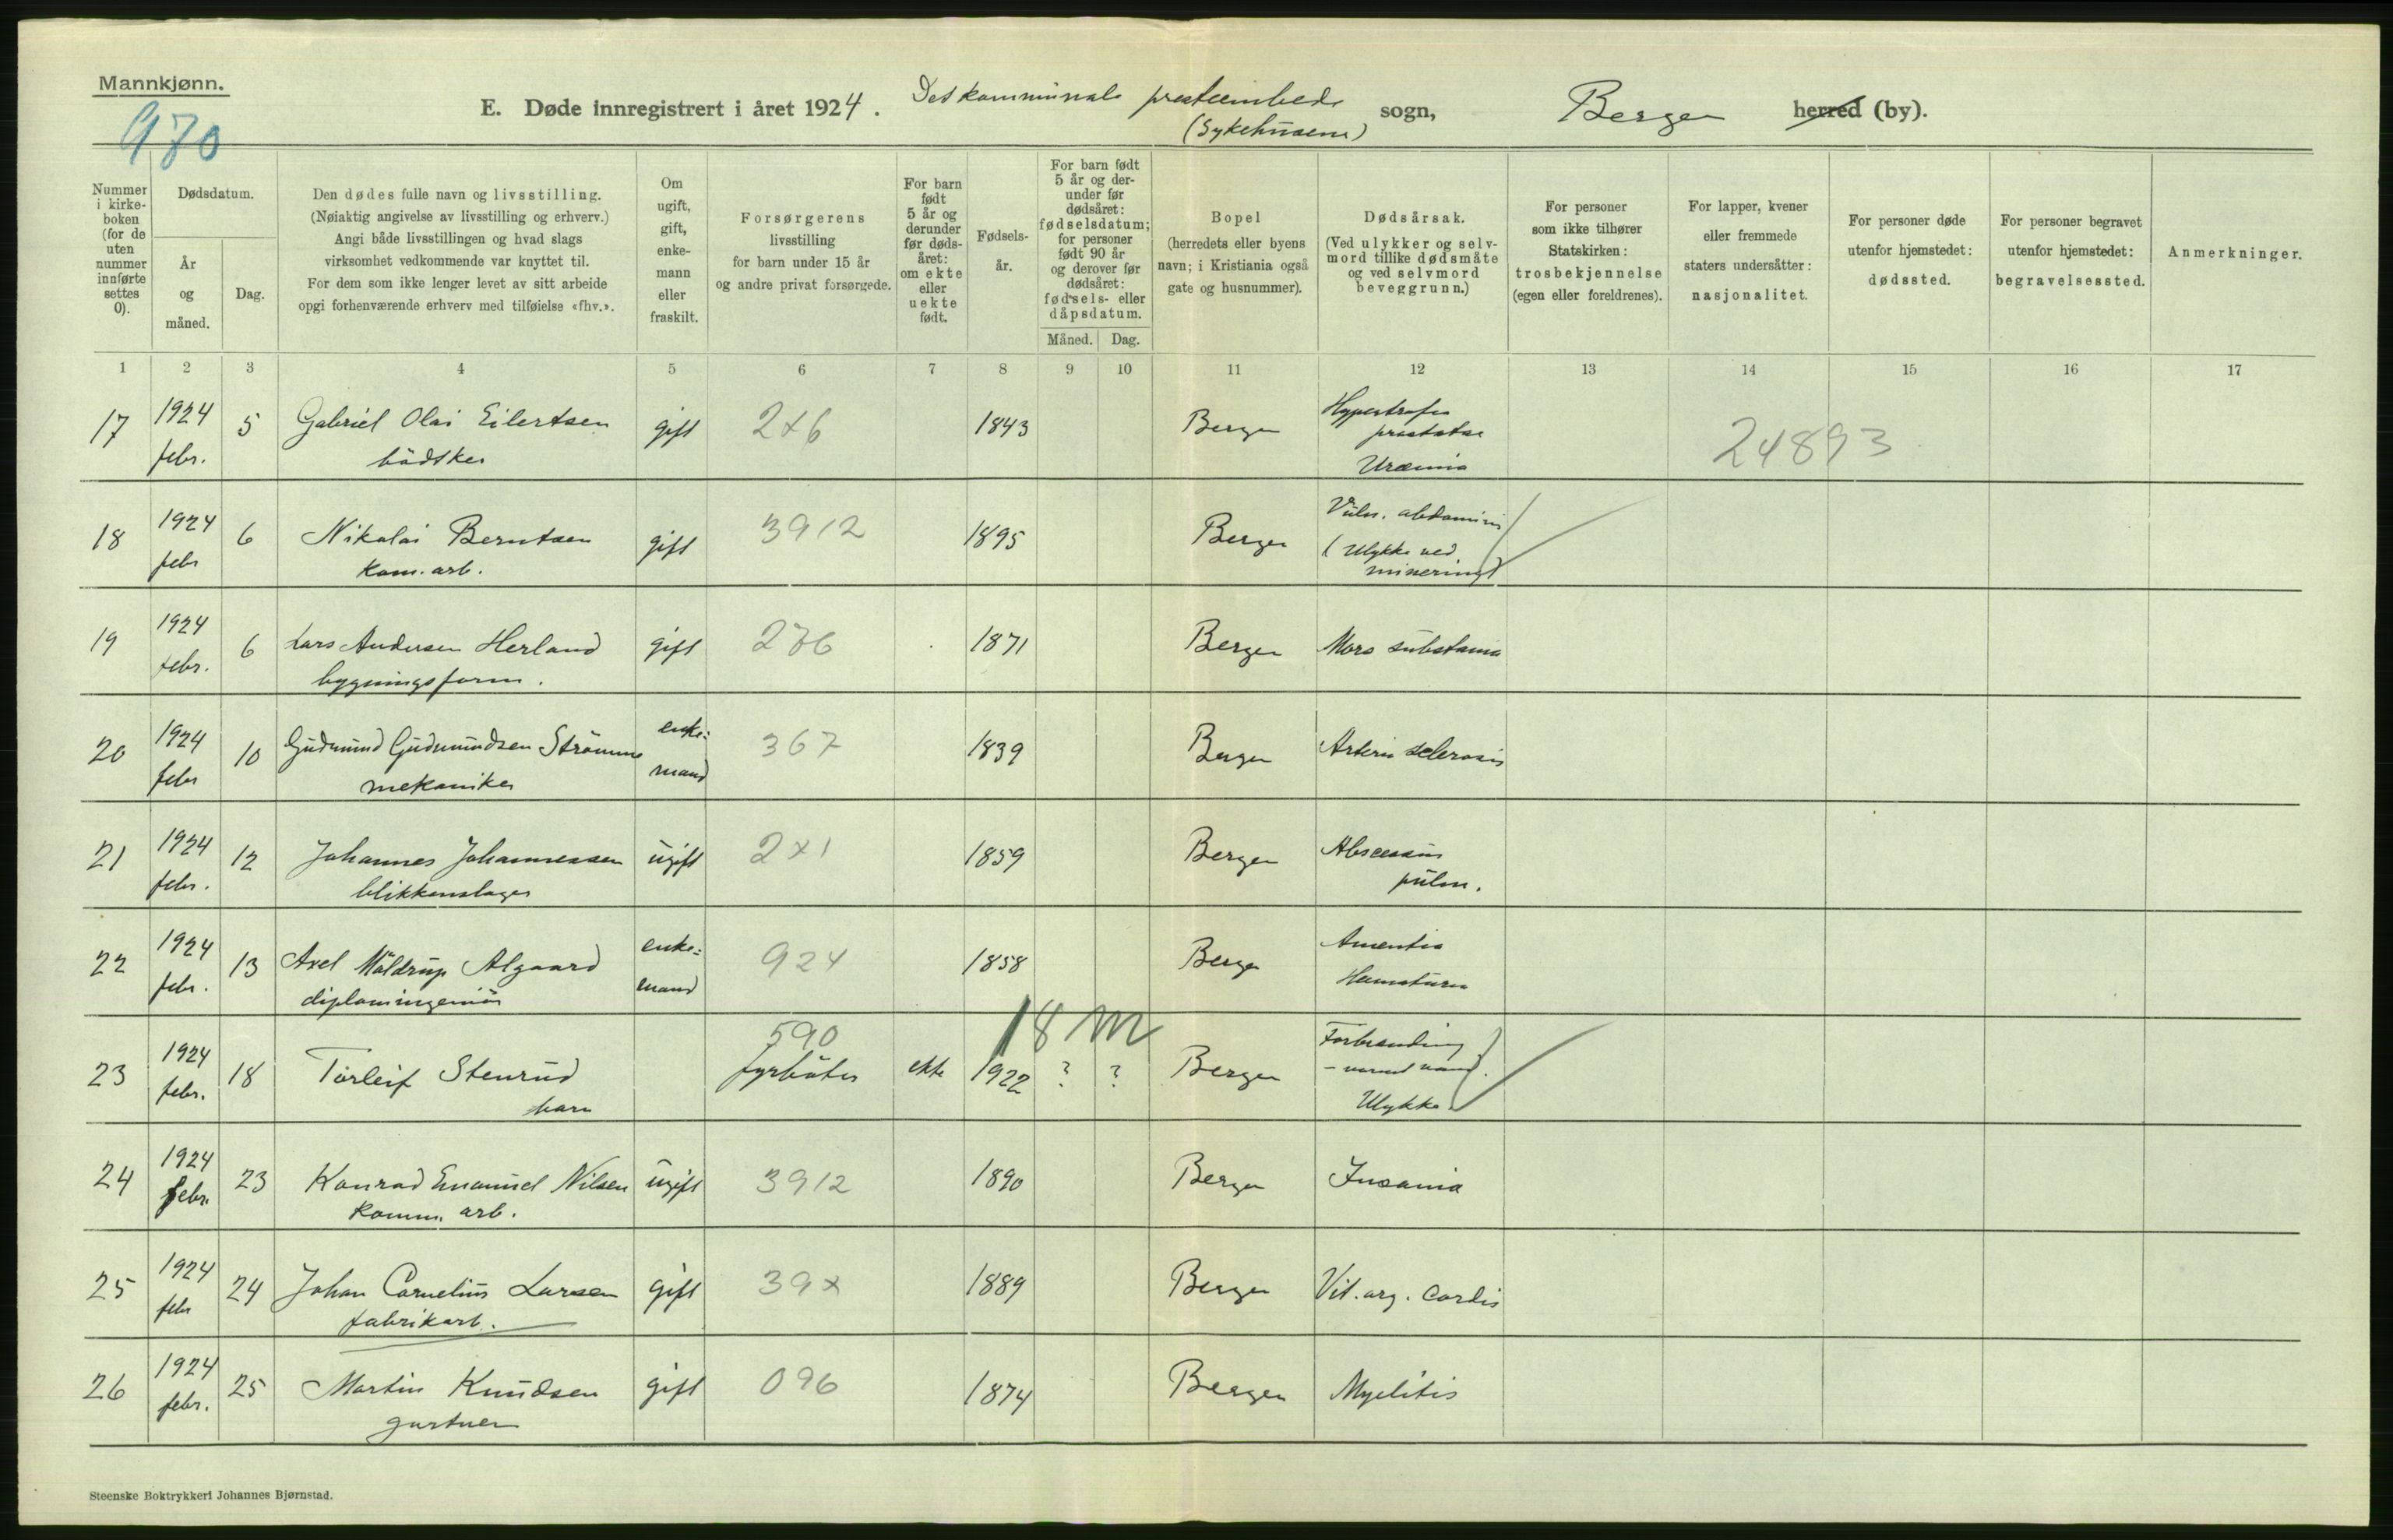 Mannkjønn.
970
E. Døde innregistrert i året 1924. Det kommunale presteembede (Sykehusene) sogn, Bergen herred (by).
Nummer i kirke-boken (for de uten nummer innførte settes 0).
Dødsdatum.
År og måned.
Dag.
Den dødes fulle navn og livsstilling.
(Nøiaktig angivelse av livsstilling og erhverv.)
Angi både livsstillingen og hvad slags
virksomhet vedkommende var knyttet til.
For dem som ikke lenger levet av sitt arbeide
opgi forhenværende erhverv med tilføielse «fhv.».
Om ugift, gift, enke-mann eller fraskilt.
Forsørgerens
livsstilling
for barn under 15 år
og andre privat forsørgede.
For barn født 5 år og derunder før døds-året: om ekte eller uekte født.
Fødsels-år.
For barn født 5 år og der-under før dødsåret: fødselsdatum; for personer født 90 år og derover før dødsåret: fødsels- eller dåpsdatum.
Måned. Dag.
Bopel
(herredets eller byens
navn; i Kristiania også
gate og husnummer).
Dødsårsak.
(Ved ulykker og selv-
mord tillike dødsmåte
og ved selvmord
beveggrunn.)
For personer
som ikke tilhører
Statskirken:
trosbekjennelse
(egen eller foreldrenes).
For lapper, kvener
eller fremmede
staters undersåtter:
nasjonalitet.
For personer døde
utenfor hjemstedet:
dødssted.
For personer begravet
utenfor hjemstedet:
begravelsessted.
Anmerkninger.
1 2 3 4 5 6 7 8 9 10 11 12 13 14 15 16 17
17 1924 febr. 5 Gabriel Olai Eilertsen gift 2x6 1843 Bergen Hypertrofia prostatae Uræmia 24893
bødtker
18 1924 febr 6 Nikolai Berntsen gift 3912 1895 Bergen Vuln. abdominis (Ulykke ved minering)
Kom. arb.
19 1924 febr. 6 Lars Andersen Herland gift 276 1871 Bergen Mors
bygningsform.
20 1924 febr 10 Gudmund Gudmundsen Strømme enke-mand 367 1839 Bergen Arterio sclerosis
mekaniker
21 1924 febr. 12 Johannes Johannessen ugift 2x1 1859 Bergen Abscessus pulm.
blikkenslager
22 1924 febr. 13 Axel Møldrup Algaard enke-mand 924 1858 Bergen Amentia Hematuria
diplomingeniør
18 M
23 1924 febr. 18 Torleif Stenrud 590 fyrbøter ekte 1922 ? ? Bergen Forbrending - varmt vand. Ulykke
barn
24 1924 febr. 23 Konrad Emanuel Nilsen ugift 3912 1890 Bergen Insania
Komm. arb.
25 1924 febr 24 Johan Cornelius Larsen gift 39x 1889 Bergen Vit. org. cordis
fabrikarb.
26 1924 febr. 25 Martin Knudsen gift 096 1874 Bergen Myelitis
gartner
Steenske Boktrykkeri Johannes Bjørnstad.